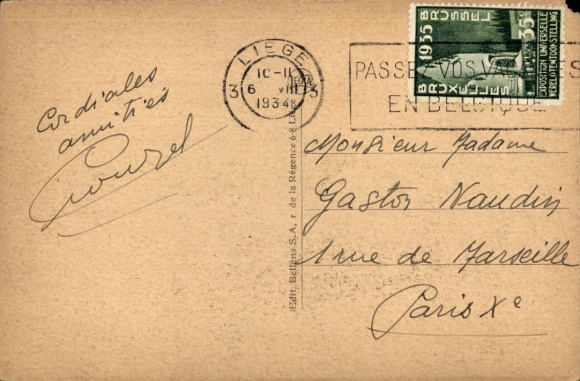 Cordiales
amitiés
LIEGE
3 3
10-11
6 VIII
1934
PASSEZ VOS VACANCES
EN BELGIQUE
1935
BRUSSEL
BRUXELLES
35c
EXPOSITION UNIVERSELLE
WERELDTENTOONSTELLING
Edit. Bellens S.A, r de la Régence 6-8 Liège
Monsieur Madame
Gaston Naudin
1 rue de Marseille
Paris Xe